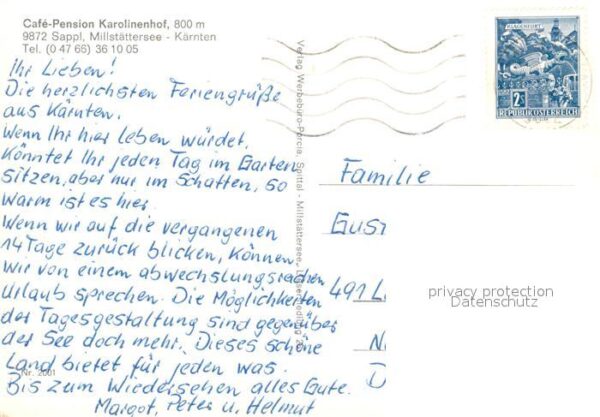 Café-Pension Karolinenhof, 800 m
9872 Sappl, Millstättersee - Kärnten
Tel. (0 47 66) 36 10 05
Ihr Lieben!
Die herzlichsten Feriengrüße
aus Kärnten.
Wenn Ihr hier leben würdet,
könntet Ihr jeden Tag im Garten
sitzen, aber nur im Schatten, so
warm ist es hier.
Wenn wir auf die vergangenen
14 Tage zurück blicken, können
wir von einem abwechslungsreichen
Urlaub sprechen. Die Möglichkeiten
der Tagesgestaltung sind gegenüber
der See doch mehr. Dieses schöne
Land bietet für jeden was.
Nr. 2001
Bis zum Wiedersehen alles Gute.
Margot, Peter u. Helmut
Verlag Werbebüro-Porcia, Spittal - Millstättersee,
KLAGENFURT
2S
REPUBLIK ÖSTERREICH
Familie
Gust
491 L
N
D
privacy protection
Datenschutz